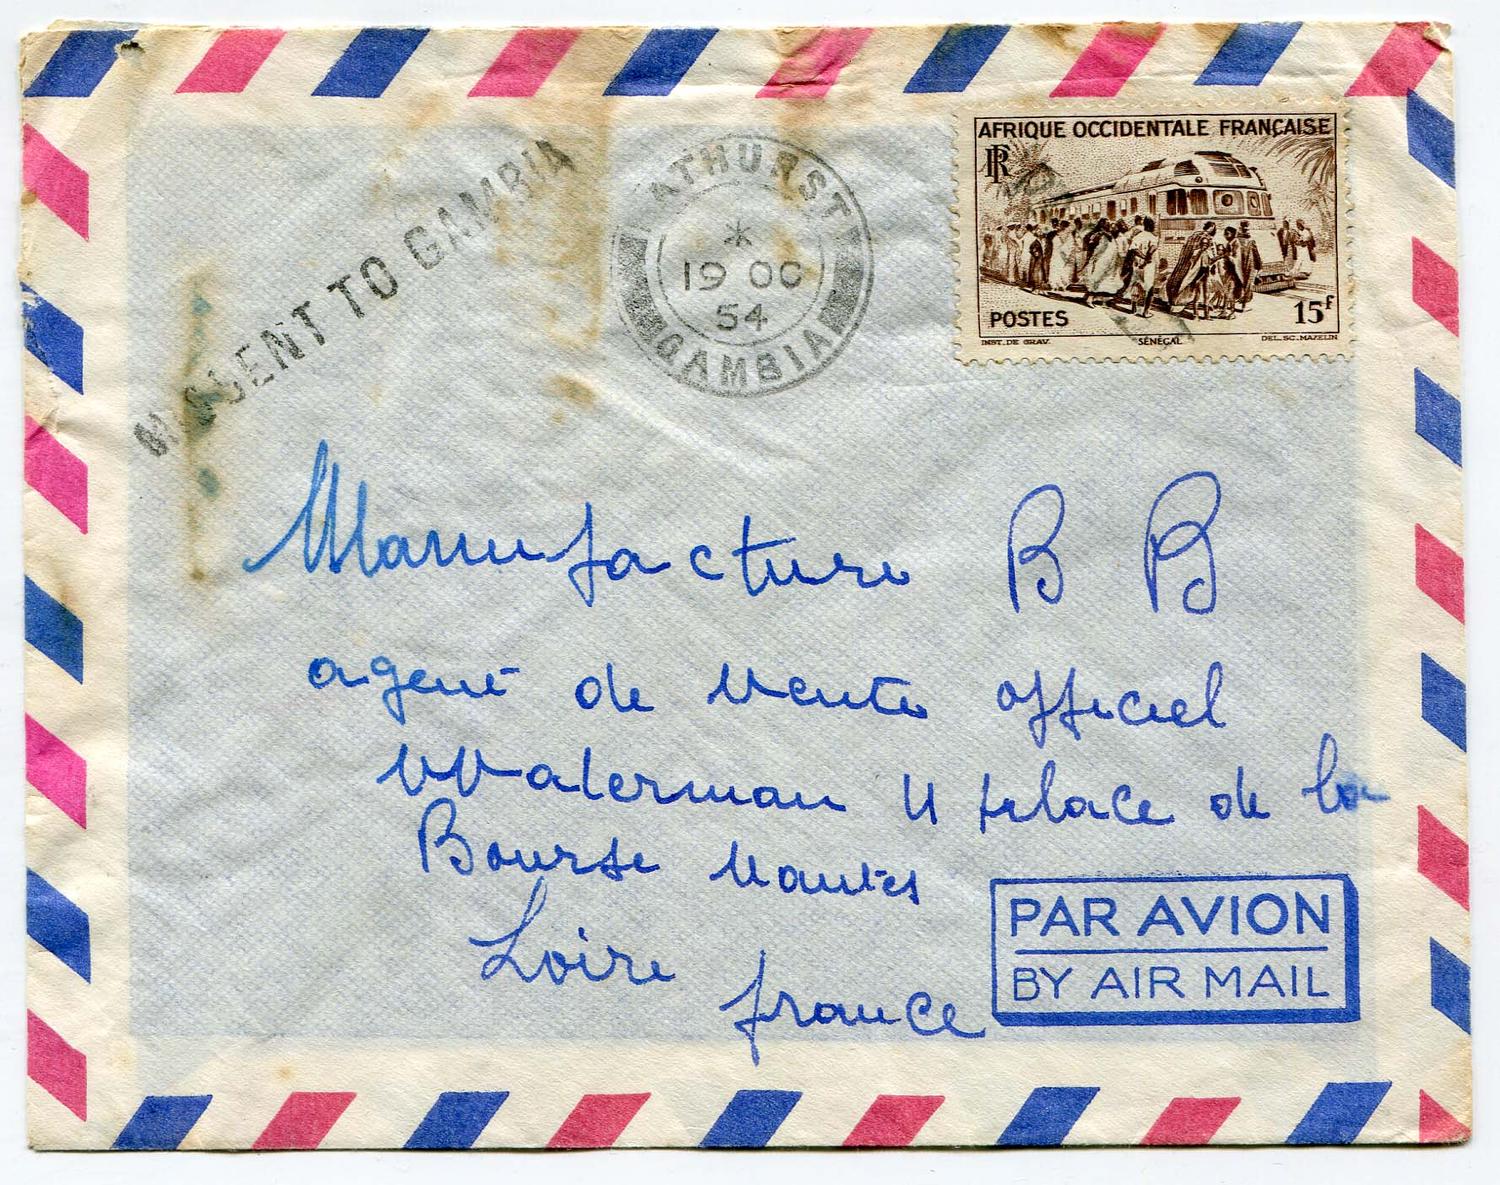 MISSENT TO GAMBIA
BATHURST
*
19 OC
54
GAMBIA
AFRIQUE OCCIDENTALE FRANÇAISE
RF
POSTES
15F
INST. DE GRAV.
SÉNÉGAL
DEL. SC. MAZELIN
Manufacture B B
agent de vente officiel
Waterman 4 place de la
Bourse Nantes
Loire
france
PAR AVION
BY AIR MAIL